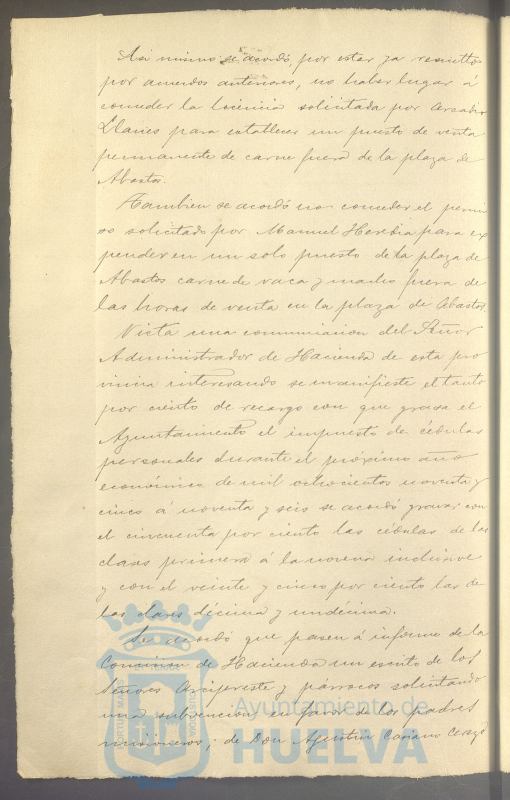 Asi mismo se acordó, por estar ya resuelto
por acuerdos anteriores, no haber lugar á
conceder la licencia solicitada por Arcadio
Llanes para establecer un puesto de venta
permanente de carne fuera de la plaza de
Abastos.
Tambien se acordó no conceder el permi
so solicitado por Manuel Heredia para ex
pender en un solo puesto de la plaza de
Abastos carne de vaca y macho fuera de
las horas de venta en la plaza de Abastos
Vista una comunicacion del Señor
Administrador de Hacienda de esta pro
vincia interesando se manifieste el tanto
por ciento de recargo con que grava el
Ayuntamiento el impuesto de cédulas
personales durante el próximo año
económico de mil ochocientos noventa y
cinco á noventa y seis se acordó gravar con
el cincuenta por ciento las cédulas de las
clases primera á la novena inclusive
y con el veinte y cinco por ciento las de
las clases décima y undécima.
Se acordó que pasen á informe de la
Comision de Hacienda un escrito de los
Señores Arcipreste y párrocos solicitando
una subvencion en favor de los padres
misioneros; de Don Agustin
Ayuntamiento de
HUELVA